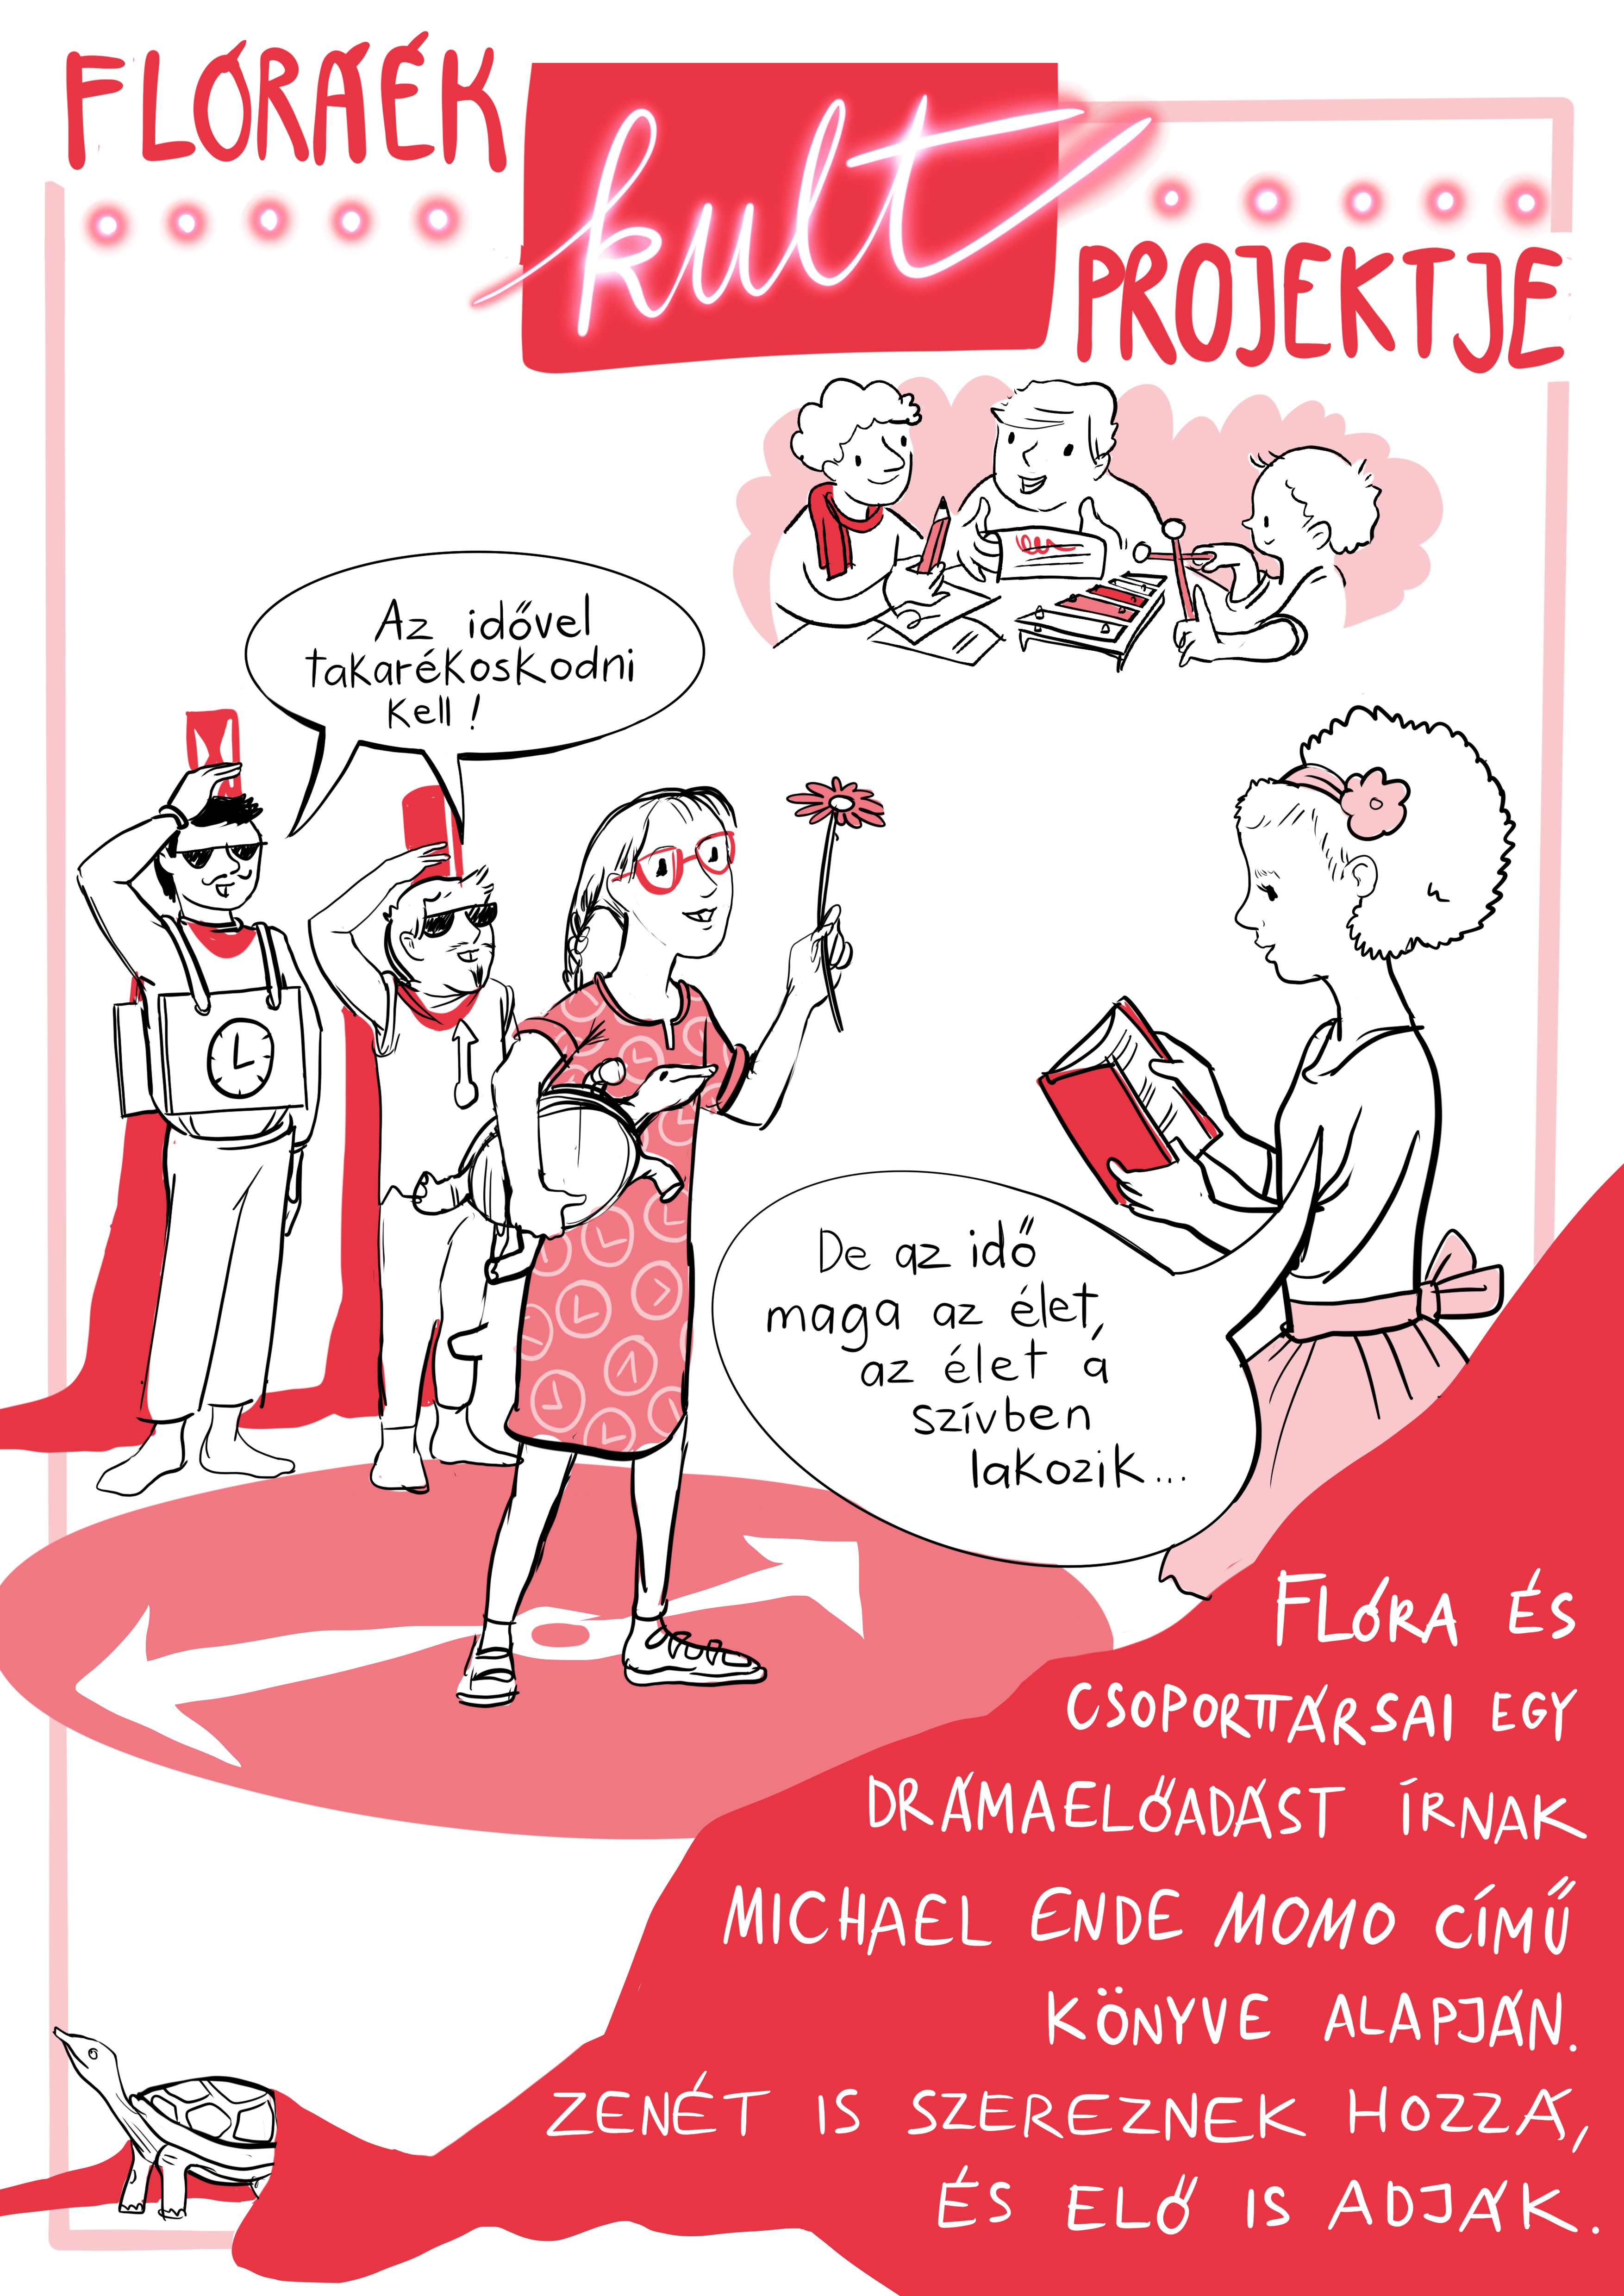 FLÓRÁÉK
kult
PROJEKTJE
Az idővel
takarékoskodni
kell!
De az idő
maga az élet,
az élet á
szívben
lakozik...
FLÓRA ÉS
CSOPORTTÁRSAI EGY
DRÁMAELŐADÁST ÍRNAK
MICHAEL ENDE MOMO CÍMŰ
KÖNYVE ALAPJÁN.
ZENÉT IS SZEREZNEK HOZZÁ,
ÉS ELŐ IS ADJÁK.